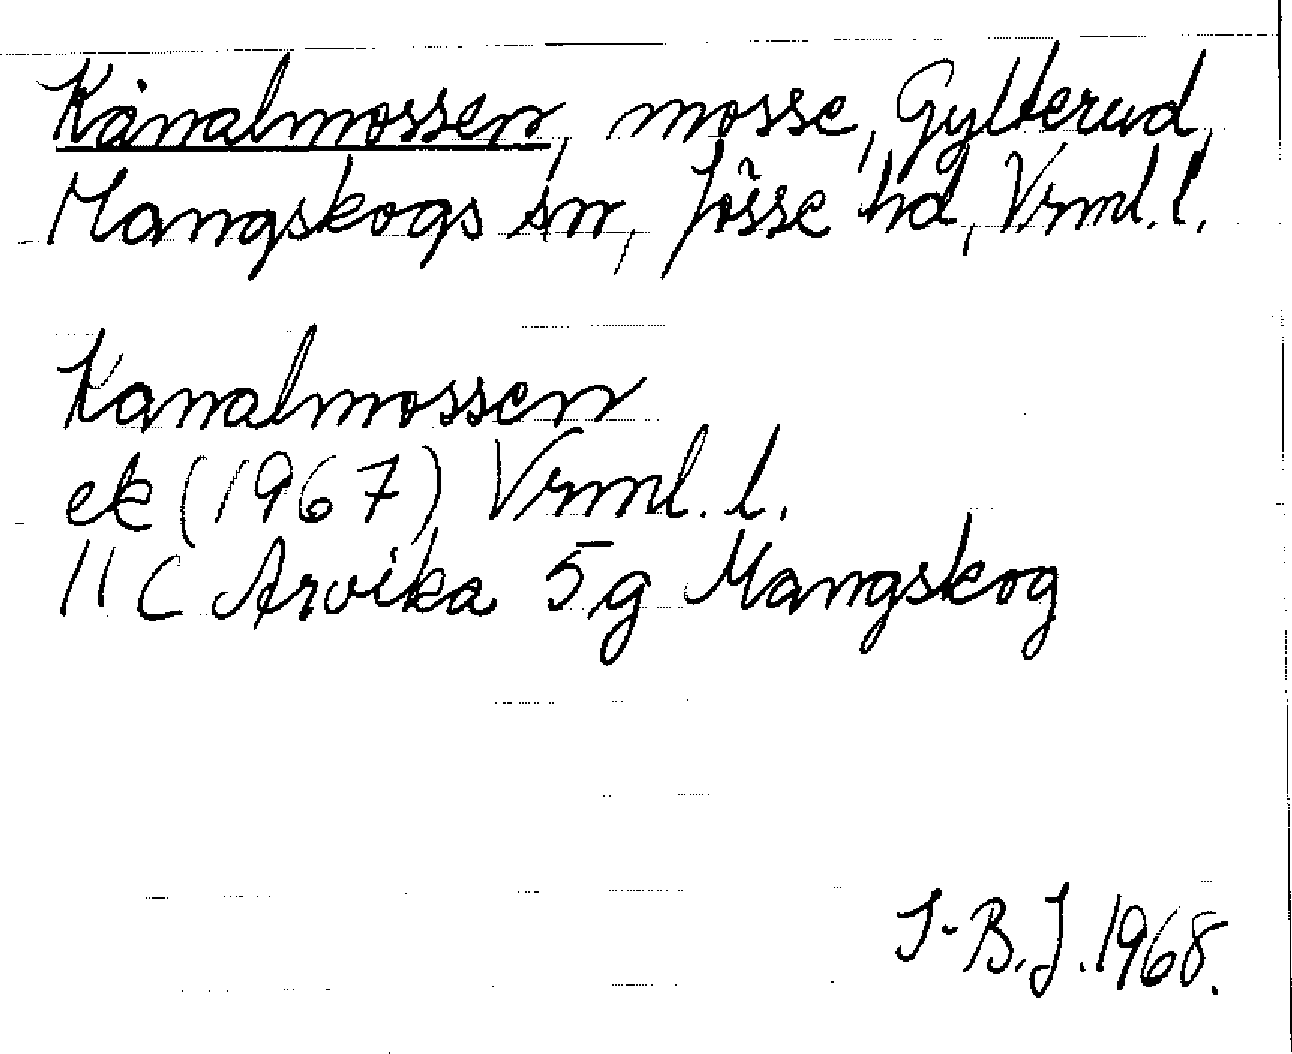 Kånalmossen, mosse, Gylterud,
Mangskogs sn, Jösse hd, Vrml. l.
Kanalmossen
ek (1967) Vrml. l.
11 C Arvika 5 g Mangskog
I-B. J. 1968.